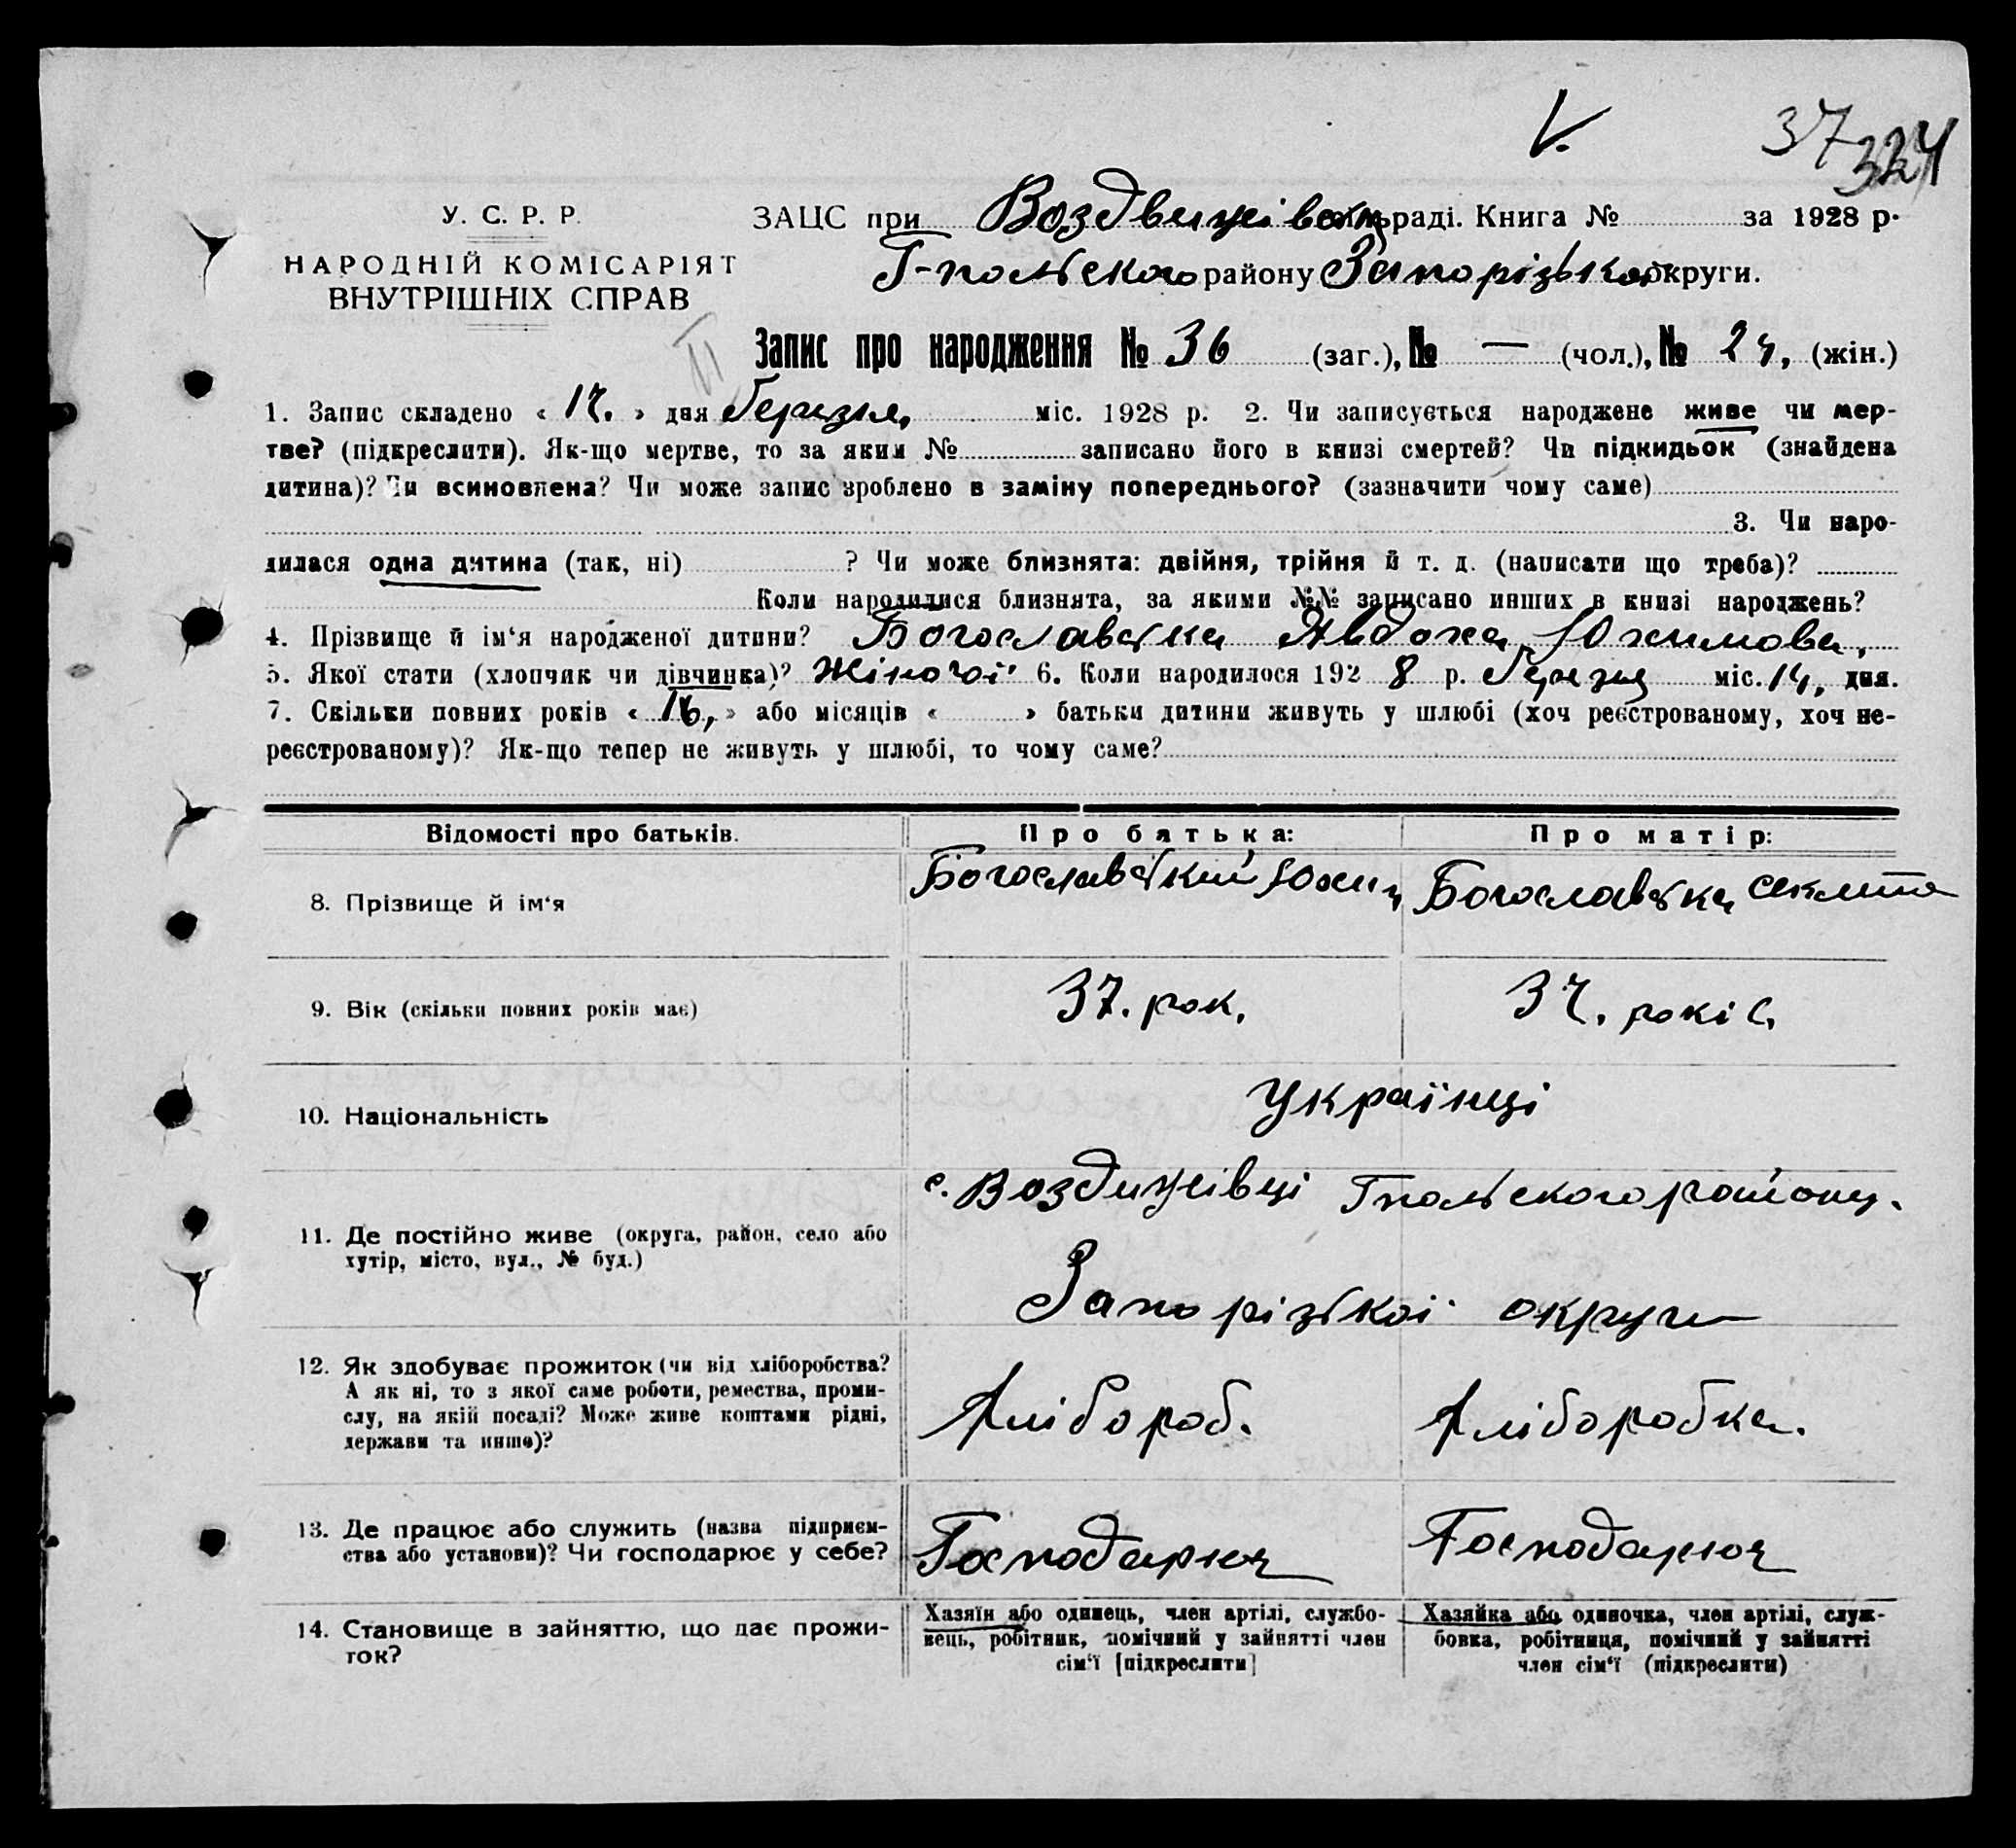 V.
37
324
У. С. Р. Р.
НАРОДНІЙ КОМІСАРІЯТ
ВНУТРІШНІХ СПРАВ
ЗАЦС при Воздвижівськ раді. Книга № за 1928 р.
Г-польского району Запорізької округи.
Запис про народження № 36 (заг.), № — (чол.), № (жін.)
1. Запис складено « » дня березня, міс. 1928 р. 2. Чи записується народжене живе чи мер-
тве? (підкреслити). Як-що мертве, то за яким № записано його в книзі смертей? Чи підкидьок (знайдена
дитина)? Чи всиновлена? Чи може запис зроблено в заміну попереднього? (зазначити чому саме)
3. Чи наро-
дилася одна дитина (так, ні) ? Чи може близнята: двійня, трійня й т. д. (написати що треба)?
Коли народилися близнята, за якими №№ записано инших в книзі народжень?
4. Прізвище й ім‘я народженої дитини? Богославська Явдоха Юхимова,
5. Якої стати (хлопчик чи дівчинка)? Жіночої 6. Коли народилося 192 8 р. березня міс. 14, дня.
7. Скільки повних років « 16, » або місяців « » батьки дитини живуть у шлюбі (хоч реєстрованому, хоч не-
реєстрованому)? Як-що тепер не живуть у шлюбі, то чому саме?
Відомості про батьків. Про батька: Про матір:
8. Прізвище й ім‘я Богославський Юхим Богославська Секлита
9. Вік (скільки повних років має) 37. рок. років,
10. Національність Українці
11. Де постійно живе (округа, район, село або
хутір, місто, вул., № буд.)
с. Воздвижівці Гпольского району.
Запорізької округи
12. Як здобуває прожиток (чи від хліборобства?
А як ні, то з якої саме роботи, ремества, проми-
слу, на якій посаді? Може живе коштами рідні,
держави та инше)?
Хлібороб. Хліборобка.
13. Де працює або служить (назва підприєм-
ства або установи)? Чи господарює у себе?
Господарює Господарює
14. Становище в зайняттю, що дає прожи-
ток?
Хазяїн або одинець, член артілі, службо-
вець, робітник, помічний у зайнятті член
сім‘ї [підкреслити]
Хазяйка або одиночка, член артілі, служ-
бовка, робітниця, помічний у зайнятті
член сім‘ї (підкреслити)